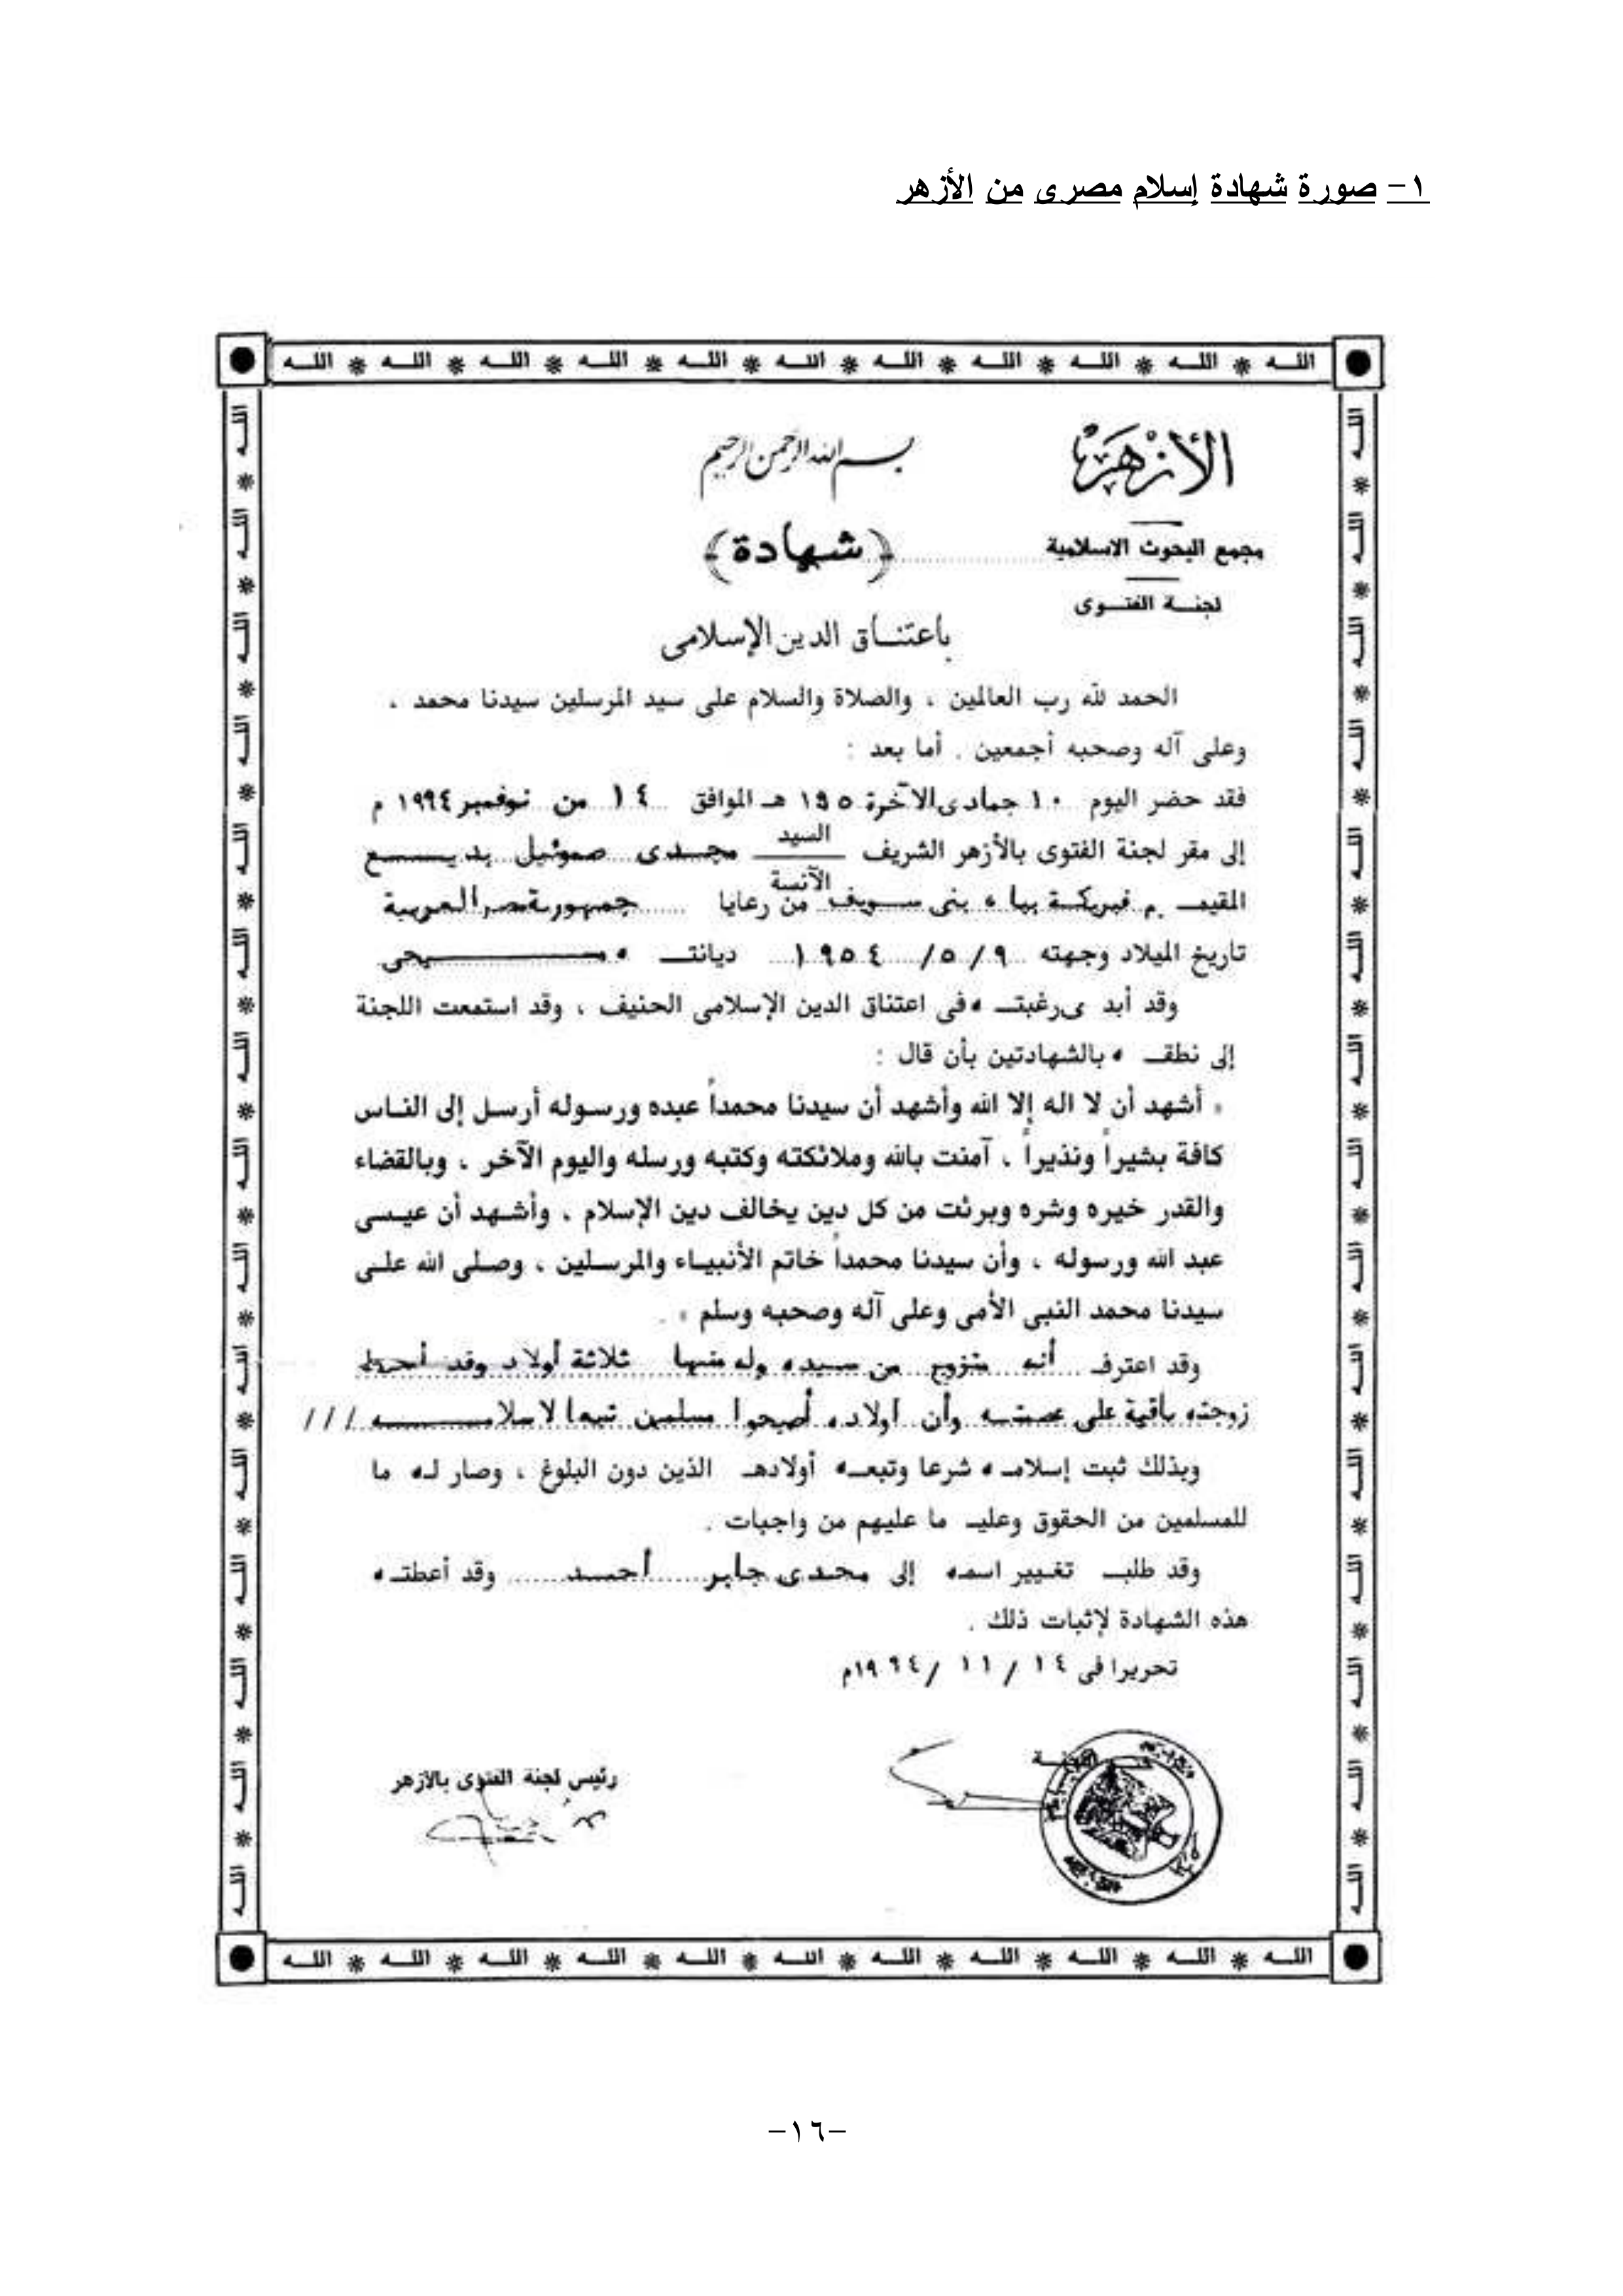 ١- صورة شهادة إسلام مصرى من الأزهر
الله * الله * الله * الله * الله * الله * الله * الله * الله * الله * الله
الأزهر
بسم الله الرحمن الرحيم
مجمع البحوث الاسلامية
﴿شهادة﴾
لجنـــة الفتـــوى
باعتنــاق الدين الإسلامى
الحمد لله رب العالمين ، والصلاة والسلام على سيد المرسلين سيدنا محمد ،
وعلى آله وصحبه أجمعين . أما بعد :
فقد حضر اليوم ١٠ جمادى الآخرة هـ الموافق ١٤ من نوفمبر ١٩٩٤ م
إلى مقر لجنة الفتوى بالأزهر الشريف السيد / الآنسة مجدى صموئيل بديـــع
المقيمـ ببا ، بنى سـويف من رعايا جمهورية مصر العربية
تاريخ الميلاد وجهته ٩ / ٥ / ١٩٥٤ ديانتــه مسيحى
وقد أبدى رغبتــه فى اعتناق الدين الإسلامى الحنيف ، وقد استمعت اللجنة
إلى نطقــه بالشهادتين بأن قال :
« أشهد أن لا اله إلا الله وأشهد أن سيدنا محمداً عبده ورسوله أرسل إلى الناس
كافة بشيراً ونذيراً ، آمنت بالله وملائكته وكتبه ورسله واليوم الآخر ، وبالقضاء
والقدر خيره وشره وبرئت من كل دين يخالف دين الإسلام ، وأشهد أن عيسى
عبد الله ورسوله ، وأن سيدنا محمداً خاتم الأنبياء والمرسلين ، وصلى الله على
سيدنا محمد النبى الأمى وعلى آله وصحبه وسلم » .
وقد اعترف أنه متزوج من سيده وله منها ثلاثة أولاد وقد
زوجته باقية على عصمته وأن أولاده أصبحوا مسلمين تبعا لاسلامــه ///
وبذلك ثبت إسلامـه شرعا وتبعـه أولادهـ الذين دون البلوغ ، وصار لـه ما
للمسلمين من الحقوق وعليـ ما عليهم من واجبات .
وقد طلبـ تغيير اسمه إلى مجدى جابر أحمـد وقد أعطتـه
هذه الشهادة لإثبات ذلك .
تحريرا فى ١٤ / ١١ / ١٩٩٤م
رئيس لجنة الفتوى بالأزهر
الله * الله * الله * الله * الله * الله * الله * الله * الله * الله * الله
-١٦-